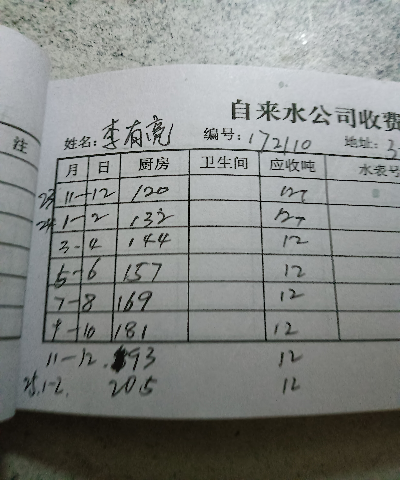 自来水公司收费
注
姓名: 李有亮 编号: 172110 地址: 3-
月 日 厨房 卫生间 应收吨 水表号
23 11-12 120 12T
24 1-2 132 12T
3-4 144 12
5-6 157 12
7-8 169 12
9-10 181 12
11-12. 193 12
25.1-2. 205 12